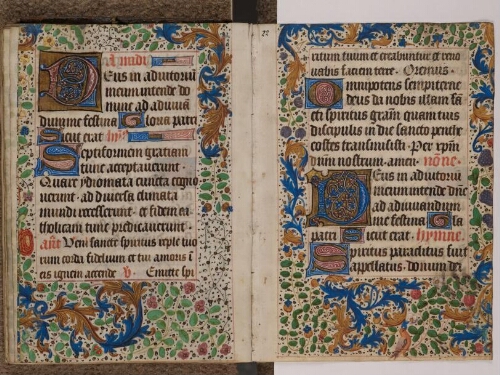 Ad midi
Deus in adiutoriū
meum intende do
mine ad adiuuā
dum me festina Gloria patri
Sicut erat
Septiformem gratiam
tunc acceptauerunt
Quare ydiomata cuncta cogno
uerunt · ad diuersa climata
mundi recesserunt · et fidem ca
tholicam tunc predicauerunt
añt Veni sancte spiritus reple tuo
rum corda fidelium et tui amoris ī
eis ignem accende · V · Emitte spi
22
ritum tuum et creabuntur et reno
uabis faciem terre · Oremus ·
Omnipotens sempiterne
deus da nobis illam sā
cti spiritus grām quam tuis
discipulis in die sancto penthe
costes transmisisti · Per xp̄m
dn̄m nostrum · amen · none ·
Deus in adiutoriū
meum intende dn̄e
ad adiuuandum
me festina Gla
patri Sicut erat · hymne ·
Spiritus paraclitus fuit
appellatus · donum dei